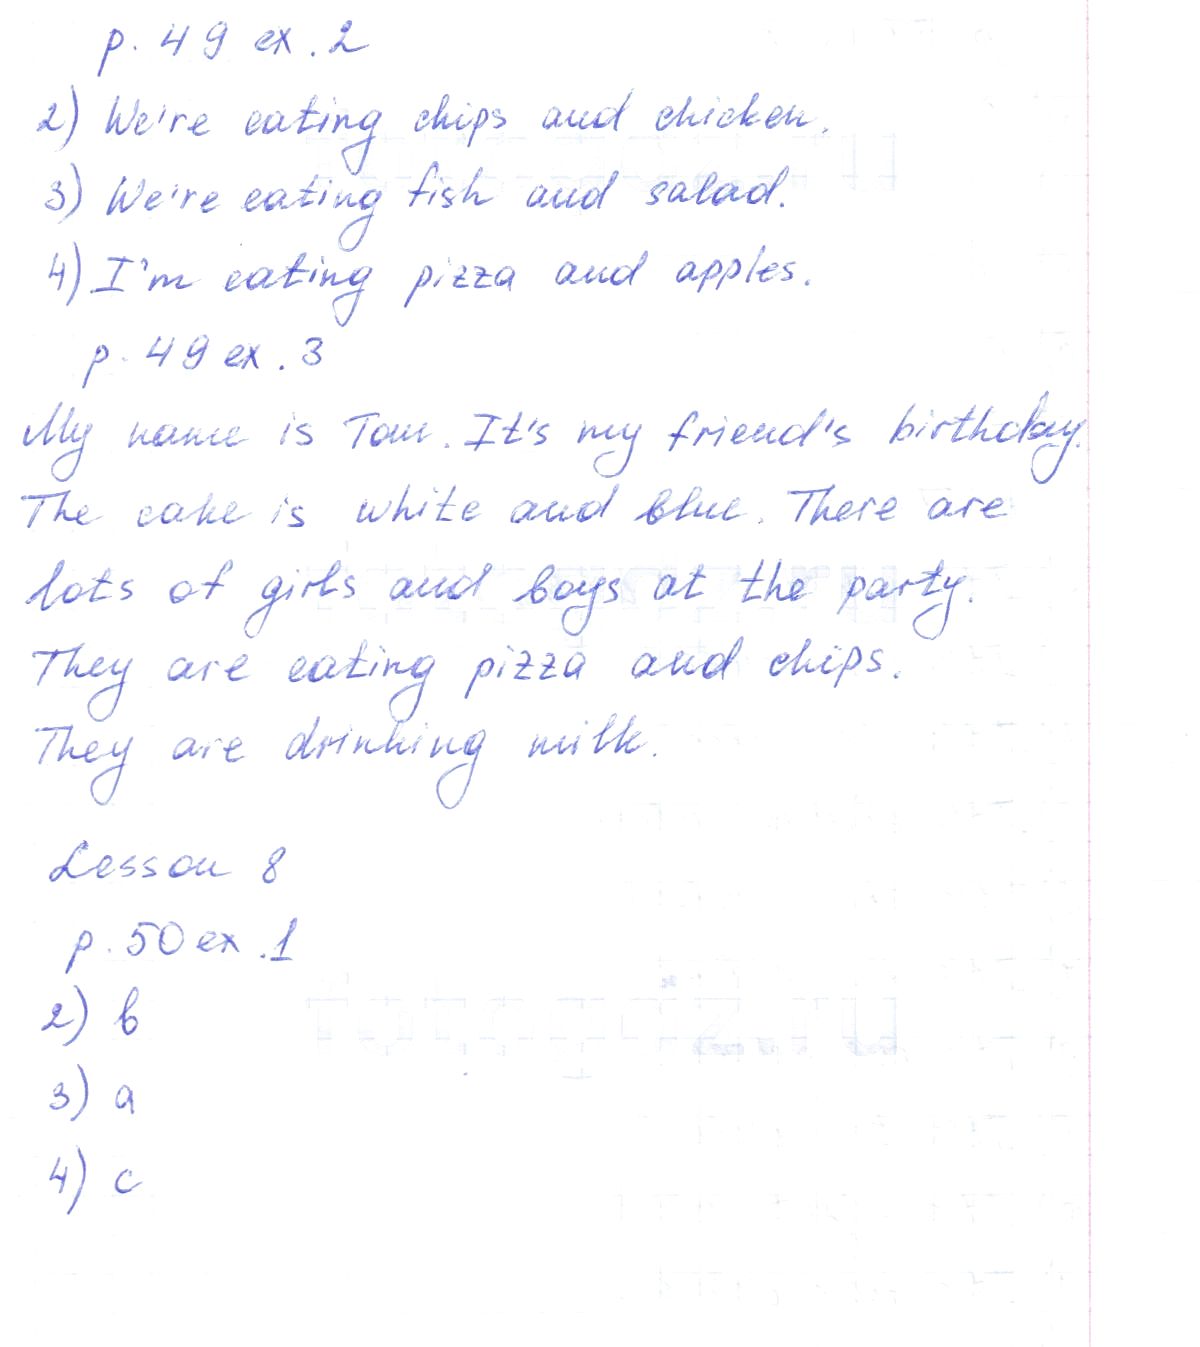 p. 49 ex. 2
2) We're eating chips and chicken.
3) We're eating fish and salad.
4) I'm eating pizza and apples.
p. 49 ex. 3
My name is Tom. It's my friend's birthday.
The cake is white and blue. There are
lots of girls and boys at the party.
They are eating pizza and chips.
They are drinking milk.
Lesson 8
p. 50 ex. 1
2) b
3) a
4) c